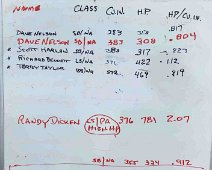 NAME CLASS C.IN. H.P. H.P/CU.IN.
DAVE NELSON SB/NA 383 .817
DAVE NELSON SB/NA 383 308 .804
* SCOTT HARLAN SB/NA 383 317 .827
* RICHARD BENNETT 422 .112
* TERRY TAYLOR /NA 469 .819
RANDY DICKEN LS/PA 376 781 2.07
HIGH HP
SB/NA 355 324 .912